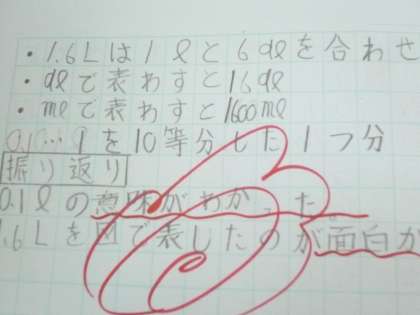 ・1.6Lは1ℓと6dℓを合わせ
・dℓで表わすと16dℓ
・mℓで表わすと1600mℓ
0.1…1を10等分した1つ分
振り返り
0.1ℓの意味がわかった
1.6Lを図で表したのが面白か